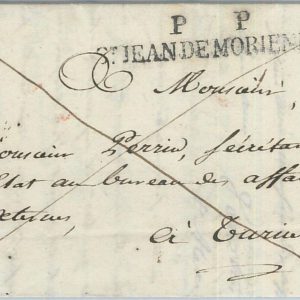 P P
ST JEAN DE MORIEN
Monsieur,
onsieur Perrin, Sécréta
État au bureau des affa
xternes,
à Turin